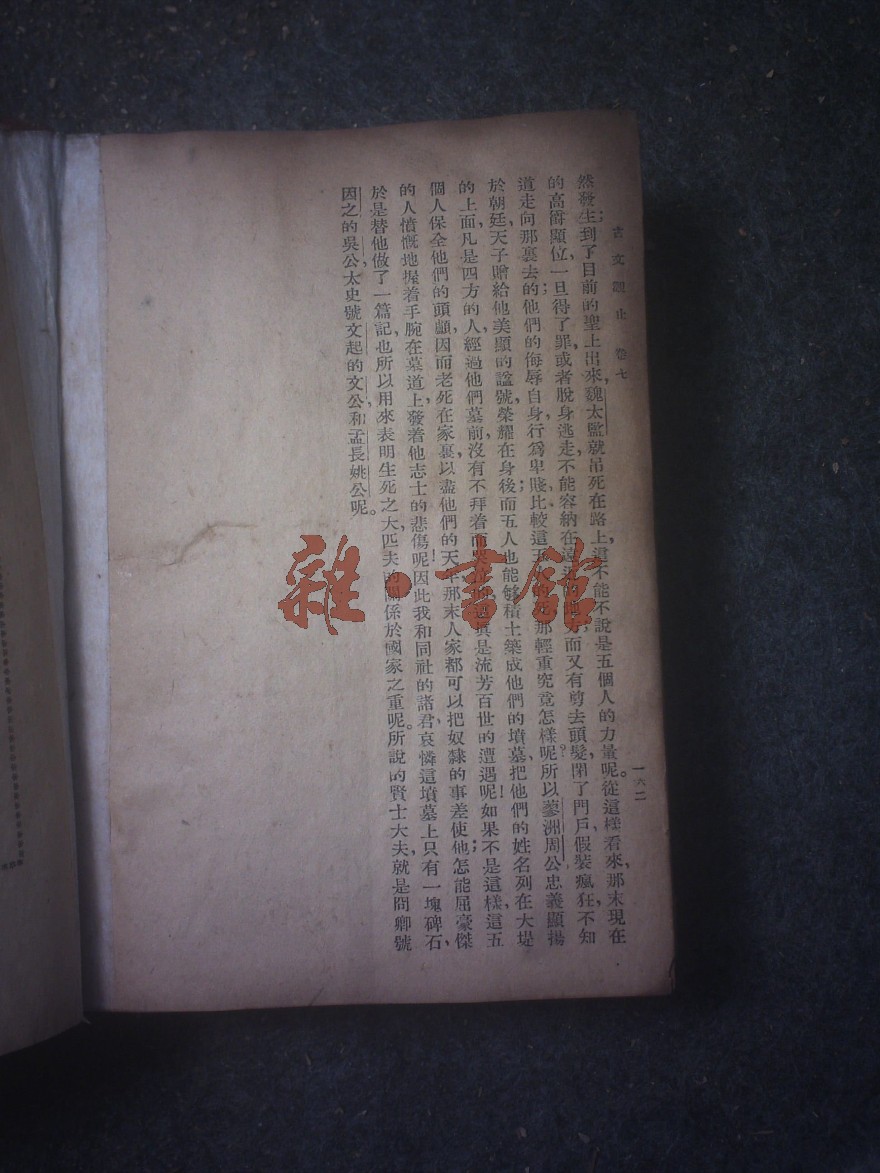 古文觀止 卷七
一六二
然發生；到了目前的聖上出來，魏太監就吊死在路上，這不能不說是五個人的力量呢。從這樣看來，那末現在
的高爵顯位，一旦得了罪，或者脫身逃走，不能容納在遠近的地方；而又有剪去頭髮，閉了門戶，假裝瘋狂，不知
道走向那裏去的；他們的侮辱自身，行爲卑賤，比較這五人的死，那輕重究竟怎樣呢？所以蓼洲周公忠義顯揚
於朝廷，天子贈給他美顯的諡號，榮耀在身後；而五人也能够積土築成他們的墳墓，把他們的姓名，列在大堤
的上面，凡是四方的人，經過他們墓前，沒有不拜着而哭泣的，這眞是流芳百世的遭遇呢！如果不是這樣，這五
個人保全他們的頭顱，因而老死在家裏，以盡他們的天年，那末人家都可以把奴隸的事差使他；怎能屈豪傑
的人憤慨地握着手腕在墓道上，發着他志士的悲傷呢！因此我和同社的諸君，哀憐這墳墓上只有一塊碑石，
於是替他做了一篇記，也所以用來表明生死之大，匹夫的關係於國家之重呢。所說的賢士大夫，就是問卿號
因之的吳公，太史號文起的文公，和孟長姚公呢。
雜·書館